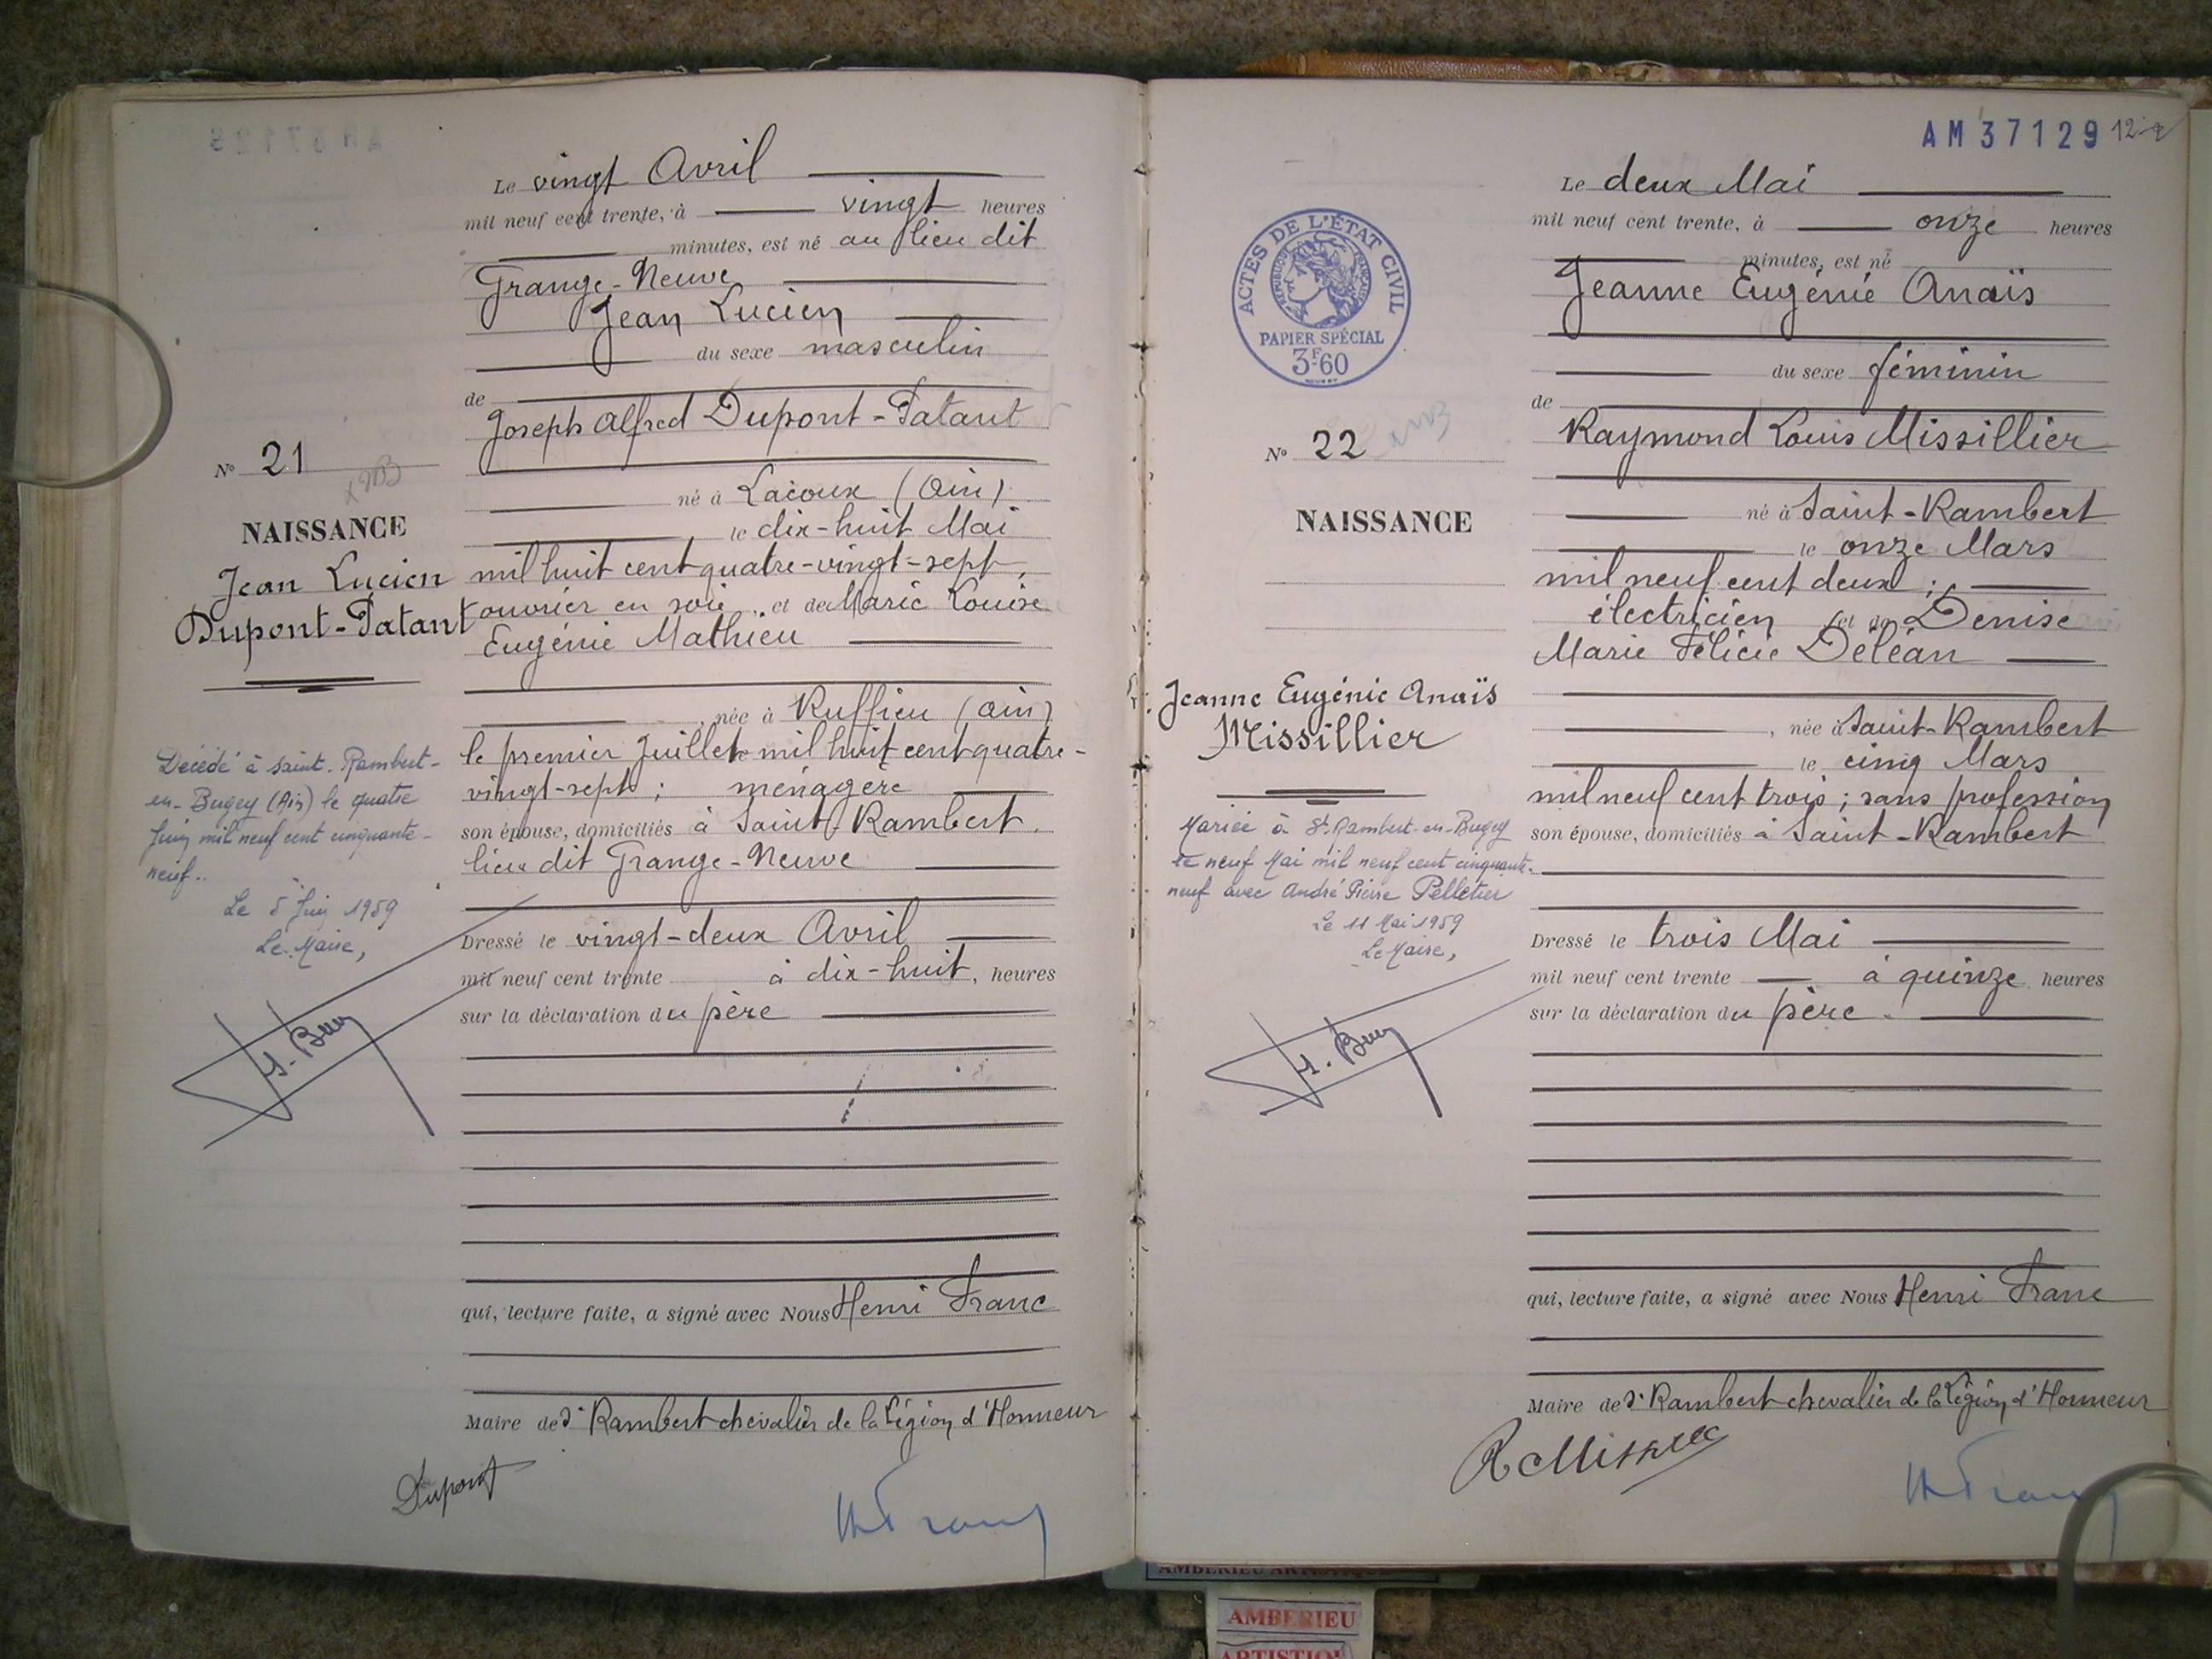 Le vingt Avril
mil neuf cent trente, à vingt heures
minutes, est né au lieu dit
Grange-Neuve
Jean Lucien
du sexe masculin
de
Joseph Alfred Dupont-Patant
né à Lacoux (Ain)
le dix-huit Mai
mil huit cent quatre-vingt-sept,
ouvrier en soie, et de Marie Louise
Eugénie Mathieu
, née à Ruffieu (Ain)
le premier Juillet mil huit cent quatre-
vingt-sept ; ménagère
son épouse, domiciliés à Saint-Rambert,
lieu dit Grange-Neuve
Dressé le vingt-deux Avril
mil neuf cent trente à dix-huit, heures
sur la déclaration du père
qui, lecture faite, a signé avec Nous Henri Franc
Maire de St Rambert chevalier de la Légion d'Honneur
Dupont
N° 21
NAISSANCE
Jean Lucien
Dupont-Patant
Décédé à Saint-Rambert-
en-Bugey (Ain) le quatre
Juin mil neuf cent cinquante-
neuf..
Le 5 Juin 1959
Le Maire,
AM 37129
ACTES DE L'ÉTAT CIVIL
RÉPUBLIQUE FRANÇAISE
PAPIER SPÉCIAL
3F60
N° 22
NAISSANCE
Jeanne Eugénie Anaïs
Missillier
Mariée à St-Rambert-en-Bugey
le neuf Mai mil neuf cent cinquante-
neuf avec André Pierre Pelletier
Le 11 Mai 1959
Le Maire,
Le deux Mai
mil neuf cent trente, à onze heures
minutes, est né
Jeanne Eugénie Anaïs
du sexe féminin
de
Raymond Louis Missillier
né à Saint-Rambert
le onze Mars
mil neuf cent deux ;
électricien et de Denise
Marie Félicie Déléan
, née à Saint-Rambert
le cinq Mars
mil neuf cent trois ; sans profession
son épouse, domiciliés à Saint-Rambert
Dressé le trois Mai
mil neuf cent trente à quinze heures
sur la déclaration du père.
qui, lecture faite, a signé avec Nous Henri Franc
Maire de St Rambert chevalier de la Légion d'Honneur
AMBERIEU ARTISTIQUE
AMBERIEU